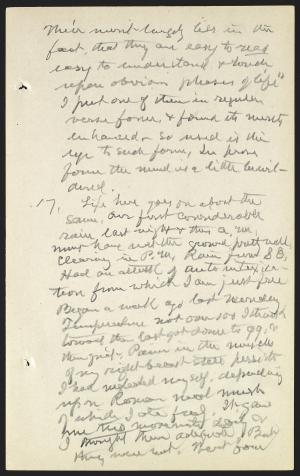 Their merit largely lies in the
fact, that they are easy to read
easy to understand & touch
upon obvious phases of life"
I put one of them in regular
verse form, & found its merits
enhanced. So used is the
eye to such form, In prose
form the mind is a little bewil-
dered.
17, Life here goes on about the
same, our first considerable
rain last night & this a.m.
must have wet the ground pretty well
Clearing in P.M. Rain from S.E,
Had an attack of auto intoxica-
tion from which I am just free
Began a week ago last
Temperature not over 100 I think
toward the last got down to 99, &
then quit, Pain in the muscles
of my right breast still persists
I had neglected myself, depending
upon Roman meal mush
of which I ate freely. It gave
me two movements daily &
I thought them adequate. But
they were not.